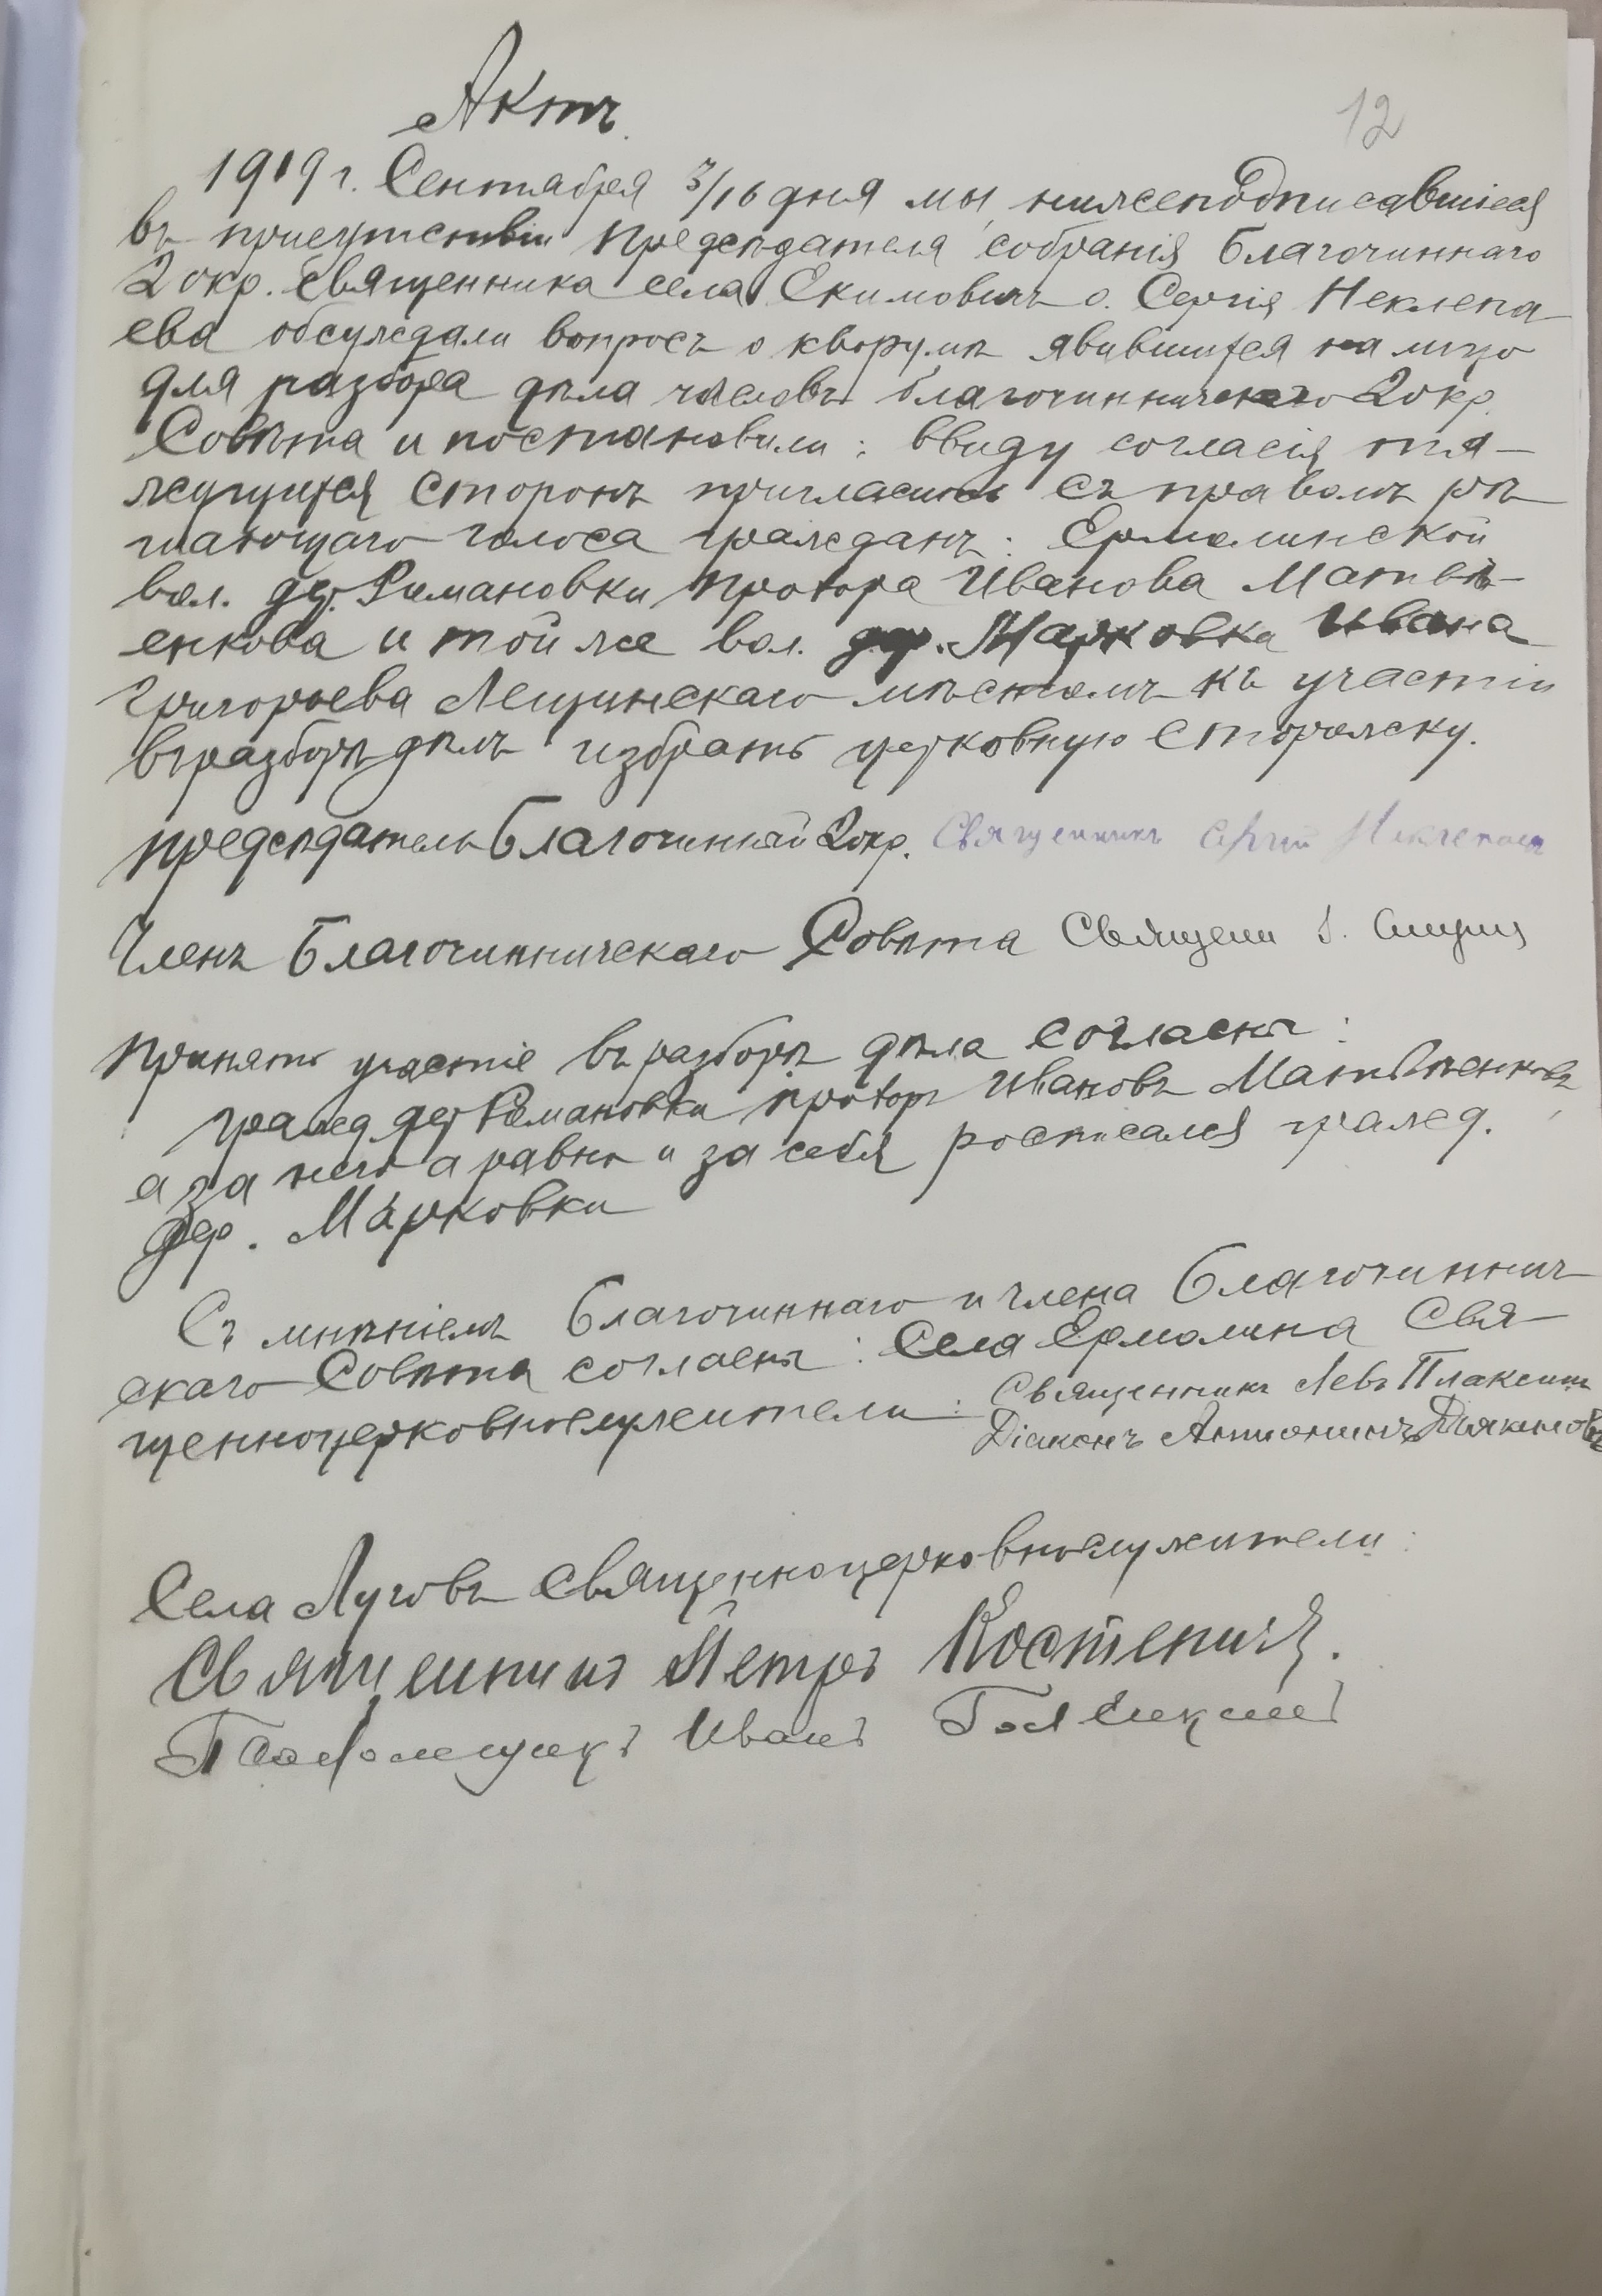 Актъ.
12
1919 г. Сентября 3/16 дня мы, нижеподписавшіеся
въ присутствіи предсѣдателя собранія Благочиннаго
2 окр. священника села Екимовичъ о. Сергія Неклепа-
ева обсуждали вопросъ о кворумѣ явившихся на лицо
для разбора дѣла членовъ благочинническаго 2 окр.
Совѣта и постановили: ввиду согласія тя-
жущихся сторонъ пригласить съ правомъ рѣ-
шающаго голоса гражданъ: Ермолинской
вол. дер. Романовки Прохора Иванова Матвѣ-
енкова и той же вол. дер. Марковки Ивана
Григорьева Лещинскаго мѣстомъ къ участію
въ разборѣ дѣлъ избрать церковную сторожку.
предсѣдатель Благочинный 2 окр. Священникъ Сергій Неклепаевъ
Членъ Благочинническаго Совѣта Священ.
Принять участіе въ разборѣ дѣла согласны:
гражд. дер. Романовки Прохоръ Ивановъ Матвѣенковъ
а за него а равно и за себя росписался гражд.
дер. Марковки
Съ мнѣніемъ Благочиннаго и члена Благочиннич-
скаго Совѣта согласны: Села Ермолина Свя-
щенноцерковнослужители: Священникъ Левъ Плаксинъ
Діаконъ Антонинъ Дьяконовъ
Села Луговъ священноцерковнослужители:
Священникъ Петръ Костеничъ.
Псаломщикъ Иванъ